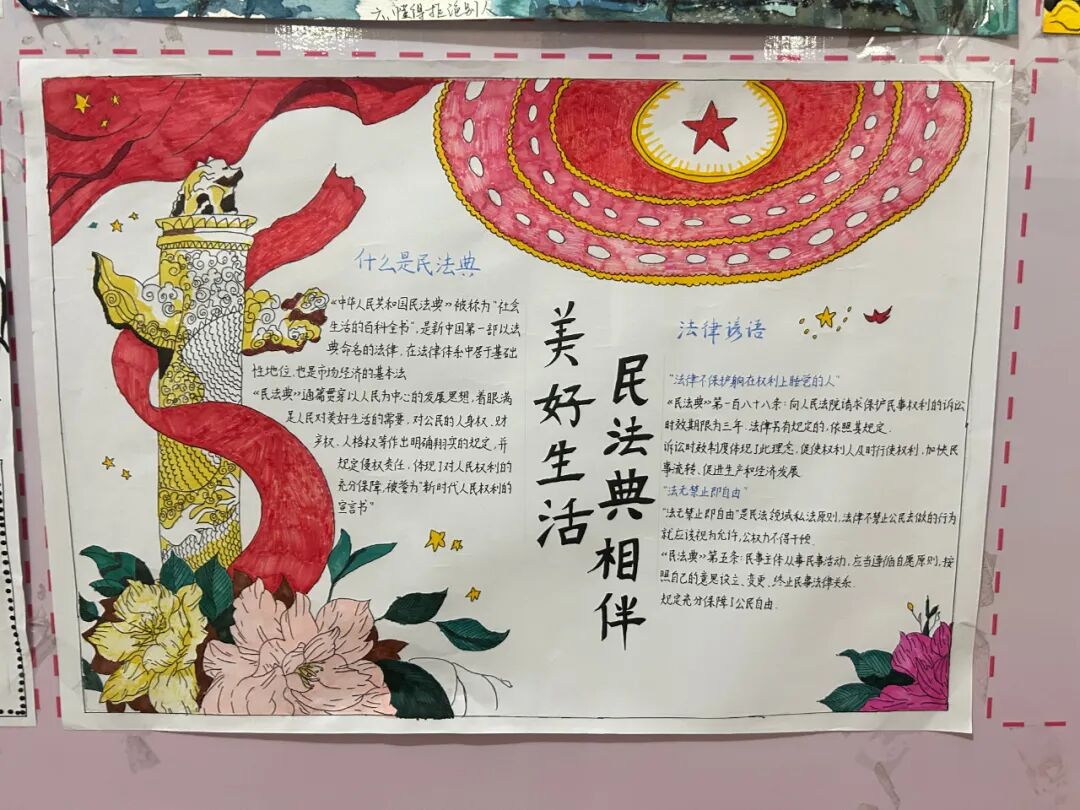 六、懂得拒绝别人
什么是民法典
《中华人民共和国民法典》被称为“社会
生活的百科全书”，是新中国第一部以法
典命名的法律，在法律体系中居于基础
性地位，也是市场经济的基本法
《民法典》通篇贯穿以人民为中心的发展思想，着眼满
足人民对美好生活的需要，对公民的人身权、财
产权、人格权等作出明确翔实的规定，并
规定侵权责任，体现了对人民权利的
充分保障，被誉为“新时代人民权利的
宣言书”
美好生活
民法典相伴
法律谚语
“法律不保护躺在权利上睡觉的人”
《民法典》第一百八十八条：向人民法院请求保护民事权利的诉讼
时效期限为三年.法律另有规定的，依照其规定.
诉讼时效制度体现了此理念，促使权利人及时行使权利，加快民
事流转、促进生产和经济发展
“法无禁止即自由”
“法无禁止即自由”是民法领域私法原则，法律不禁止公民去做的行为
就应该视为允许，公权力不得干预.
《民法典》第五条：民事主体从事民事活动，应当遵循自愿原则，按
照自己的意思设立、变更、终止民事法律关系.
规定充分保障了公民自由.